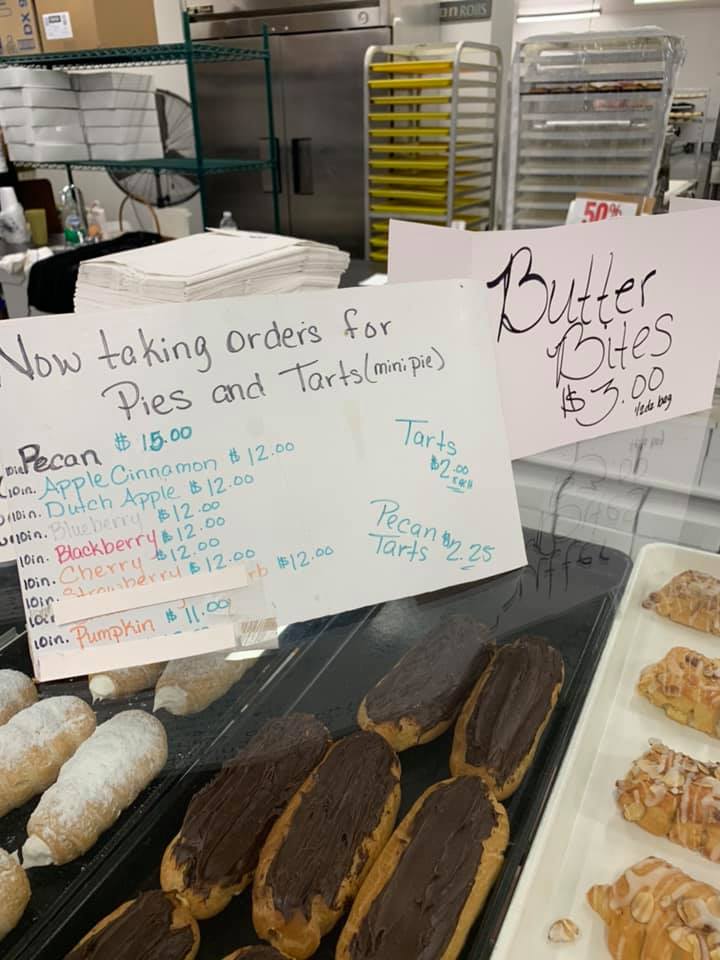 n ROLLS
50%
Butter
Bites
$3.00
1/2dz bag
Now taking orders for
Pies and Tarts (mini pie)
10in. Pecan $15.00
10in. Apple Cinnamon $12.00
10in. Dutch Apple $12.00
10in. Blueberry $12.00
10in. Blackberry $12.00
10in. Cherry $12.00
10in. Strawberry $12.00
rb $12.00
10in. Pumpkin $11.00
Tarts
$2.00
each
Pecan
Tarts $2.25